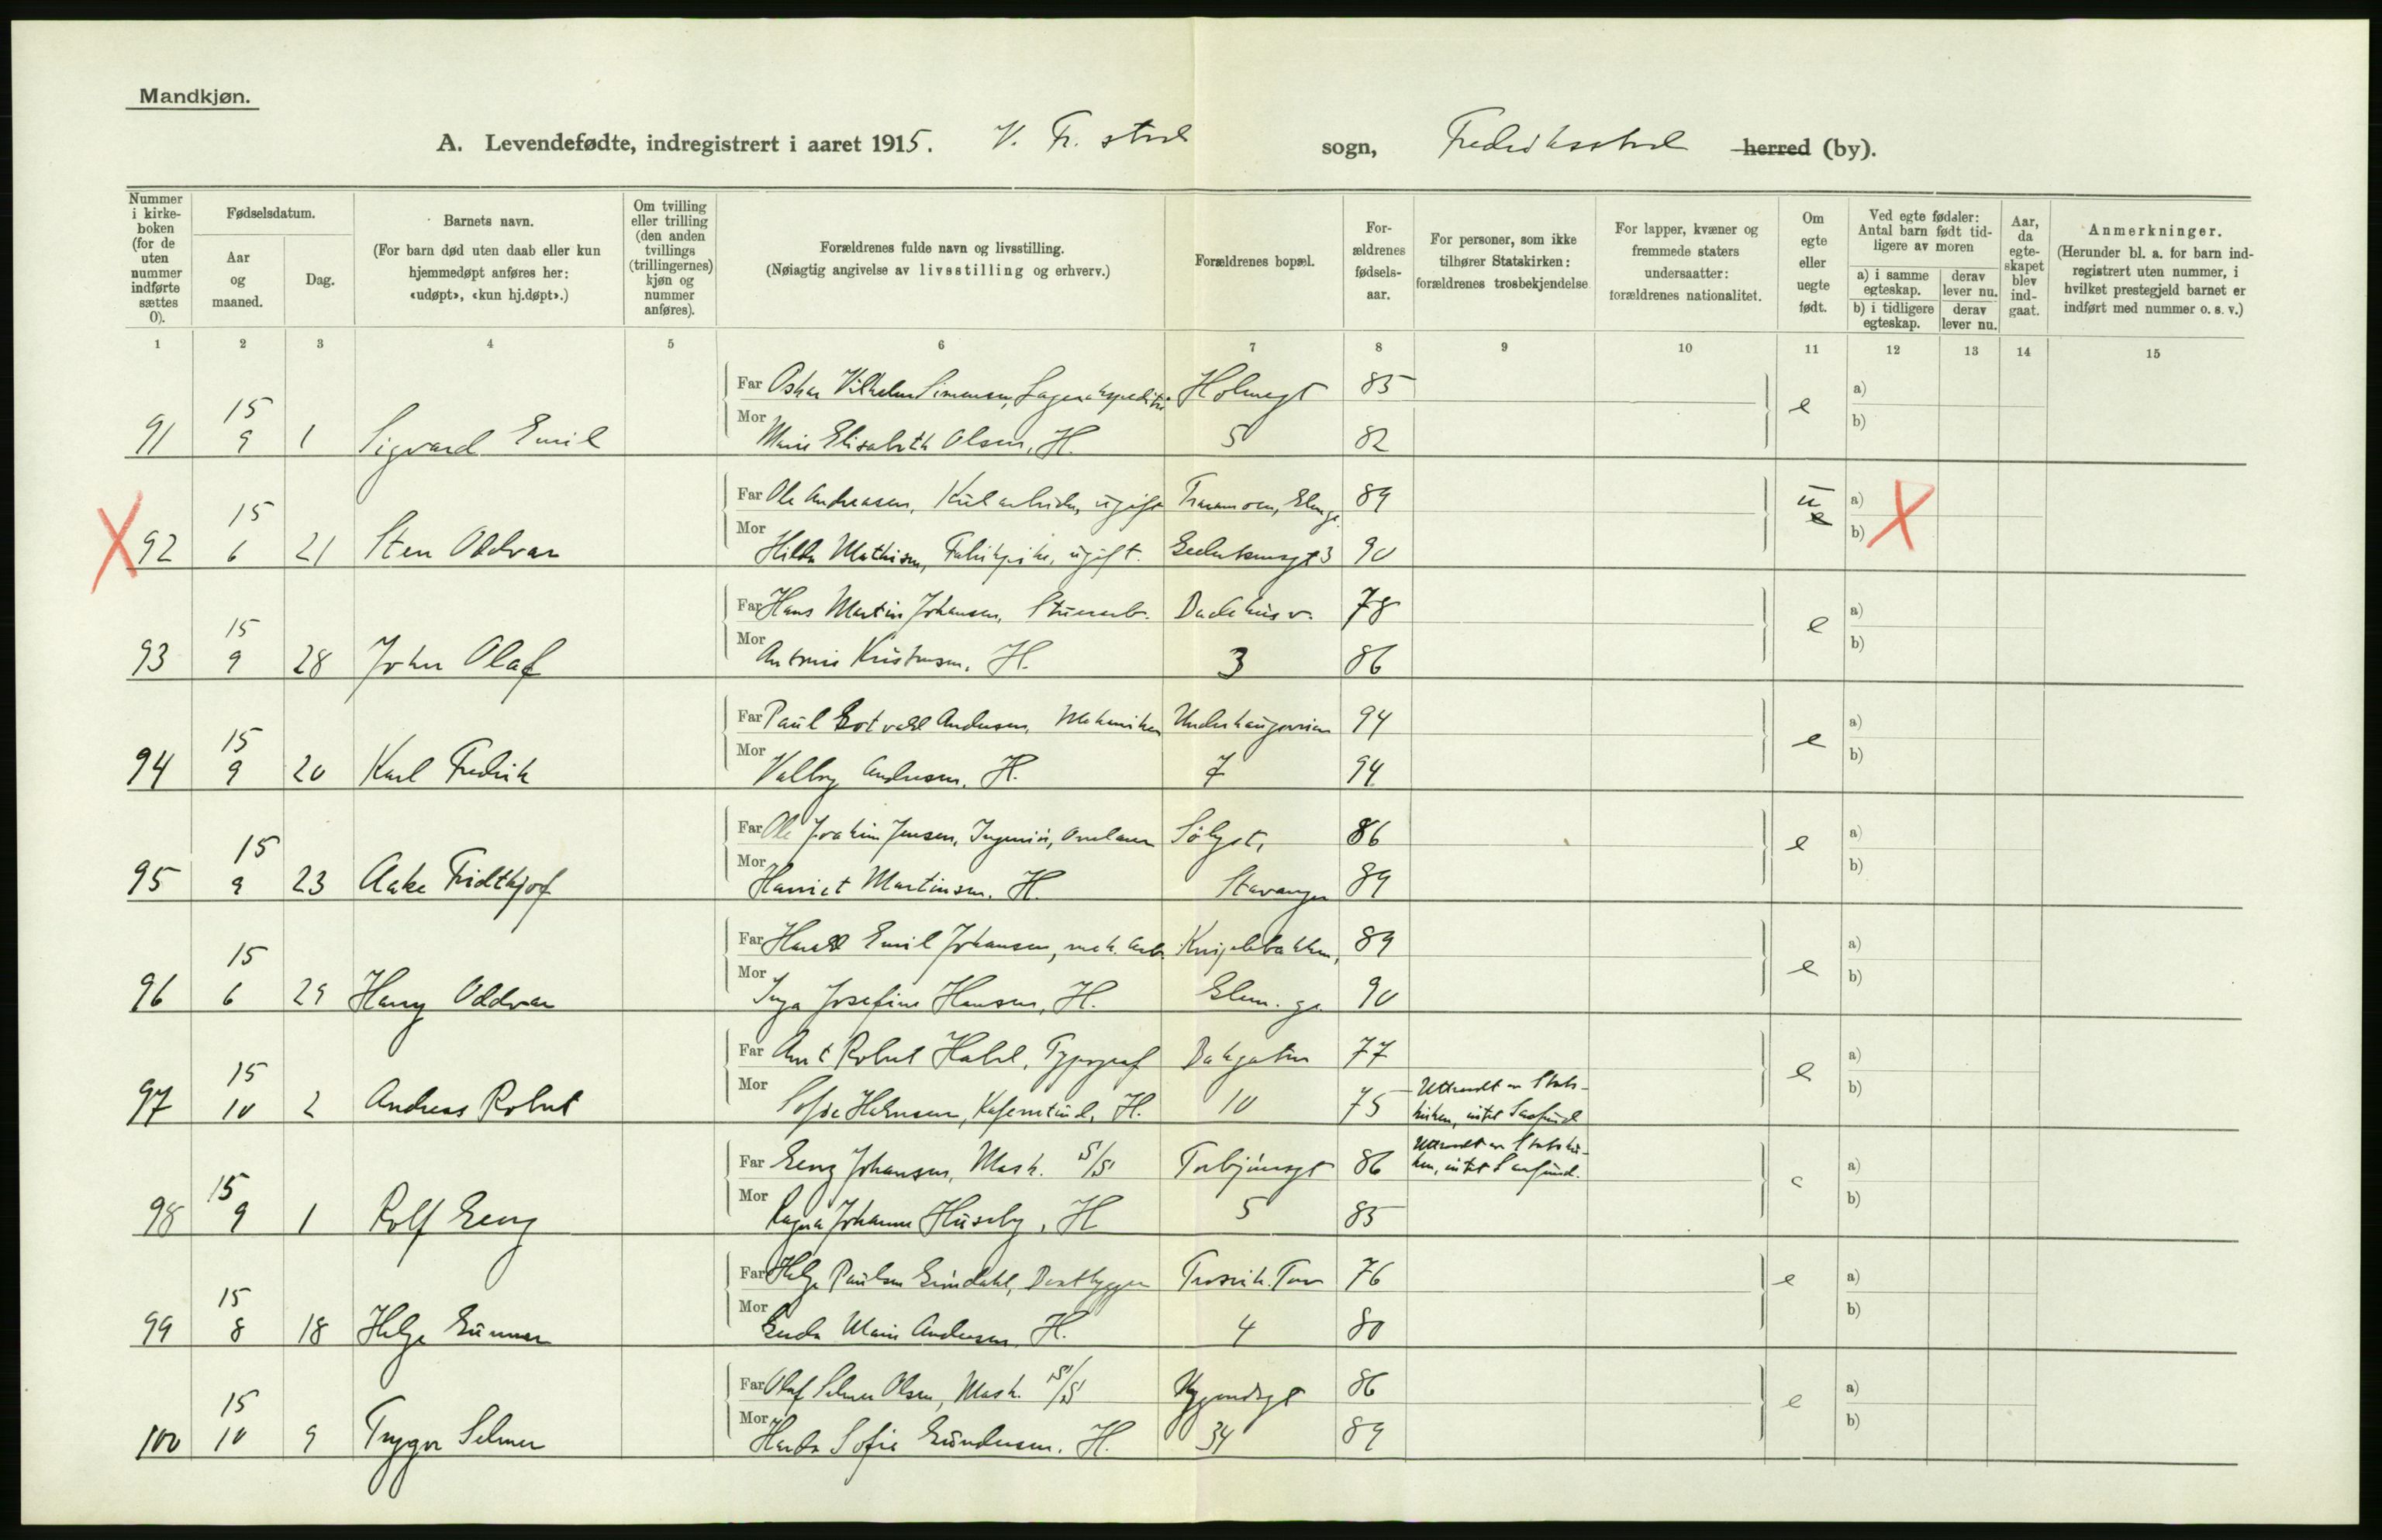 Mandkjøn.
A. Levendefødte, indregistrert i aaret 1915. V. Fr. stad sogn, Fredriksstad herred (by).
Nummer i kirkeboken (for de uten nummer indførte sættes 0).
Fødselsdatum.
Aar og maaned.
Dag.
Barnets navn.
(For barn død uten daab eller kun hjemmedøpt anføres her: «udøpt», «kun hj.døpt».)
Om tvilling eller trilling (den anden tvillings (trillingernes) kjøn og nummer anføres).
Forældrenes fulde navn og livsstilling.
(Nøiagtig angivelse av livsstilling og erhverv.)
Forældrenes bopæl.
Forældrenes fødselsaar.
For personer, som ikke tilhører Statskirken: forældrenes trosbekjendelse
For lapper, kvæner og fremmede staters undersaatter: forældrenes nationalitet.
Om egte eller uegte født.
Ved egte fødsler: Antal barn født tidligere av moren
a) i samme egteskap.
derav lever nu.
b) i tidligere egteskap.
derav lever nu.
Aar, da egteskapet blev indgaat.
Anmerkninger.
(Herunder bl. a. for barn indregistrert uten nummer, i hvilket prestegjeld barnet er indført med nummer o. s. v.)
1 2 3 4 5 6 7 8 9 10 11 12 13 14 15
Far Oskar Vilhelm Simensen, Lagerekspeditør Holmegt 85
91 15 9 1 Sigvard Emil Mor Marie Elisabeth Olsen, H. 5 82 e a) b)
Far Ole Andreasen, Kularbeider, ugift Traramoen, Glemge 89
X 92 15 6 21 Sten Oddvar Mor Hilda Mathisen, Fabrikpike, ugift. 3 90 u e a) b) X
Far Hans Martin Johansen, Stuerarb. Badehusv. 78
93 15 9 28 John Olaf Mor Antonie Kristensen, H. 3 86 e a) b)
Far Paul Gotvald Andersen, Mekaniker 94
94 15 9 20 Karl Fredrik Mor Valborg Andersen, H. 7 94 e a) b)
Far Ole Joakim Jensen, Ingeniør, Sølyst, 86
95 15 9 23 Aake Fridtkjof Mor Harriet Martinsen, H. Stavanger 89 e a) b)
Far Harald Emil Johansen, mek. arb. Knipelbakken, 89
96 15 6 29 Harry Oddvar Mor Inga Josefine Hansen, H. Glem. ge 90 e a) b)
Far Arnt Robert Habel, Typograf Bakgaten 77
97 15 10 2 Andreas Robert Mor Sofie Halvorsen, H. 10 75 Uttraadt av Statskirken, intet Samfund e a) b)
Far Georg Johansen, Mask. S/S Torbjørnsgt 86 Uttraadt av Statskirken, intet Samfund.
98 15 9 1 Rolf Georg Mor Ragna Johanne Huseby, H 5 85 e a) b)
Far Helge Paulsen Grimdahl, Baatbygger Trosvik. Torv 76
99 15 8 18 Helge Gunnar Mor Gerda Marie Andersen, H. 4 80 e a) b)
Far Olaf Selmer Olsen, Mask. S/S Nygaardsgt 86
100 15 10 9 Trygve Selmer Mor Harda Sofie Gundersen, H. 34 89 e a) b)